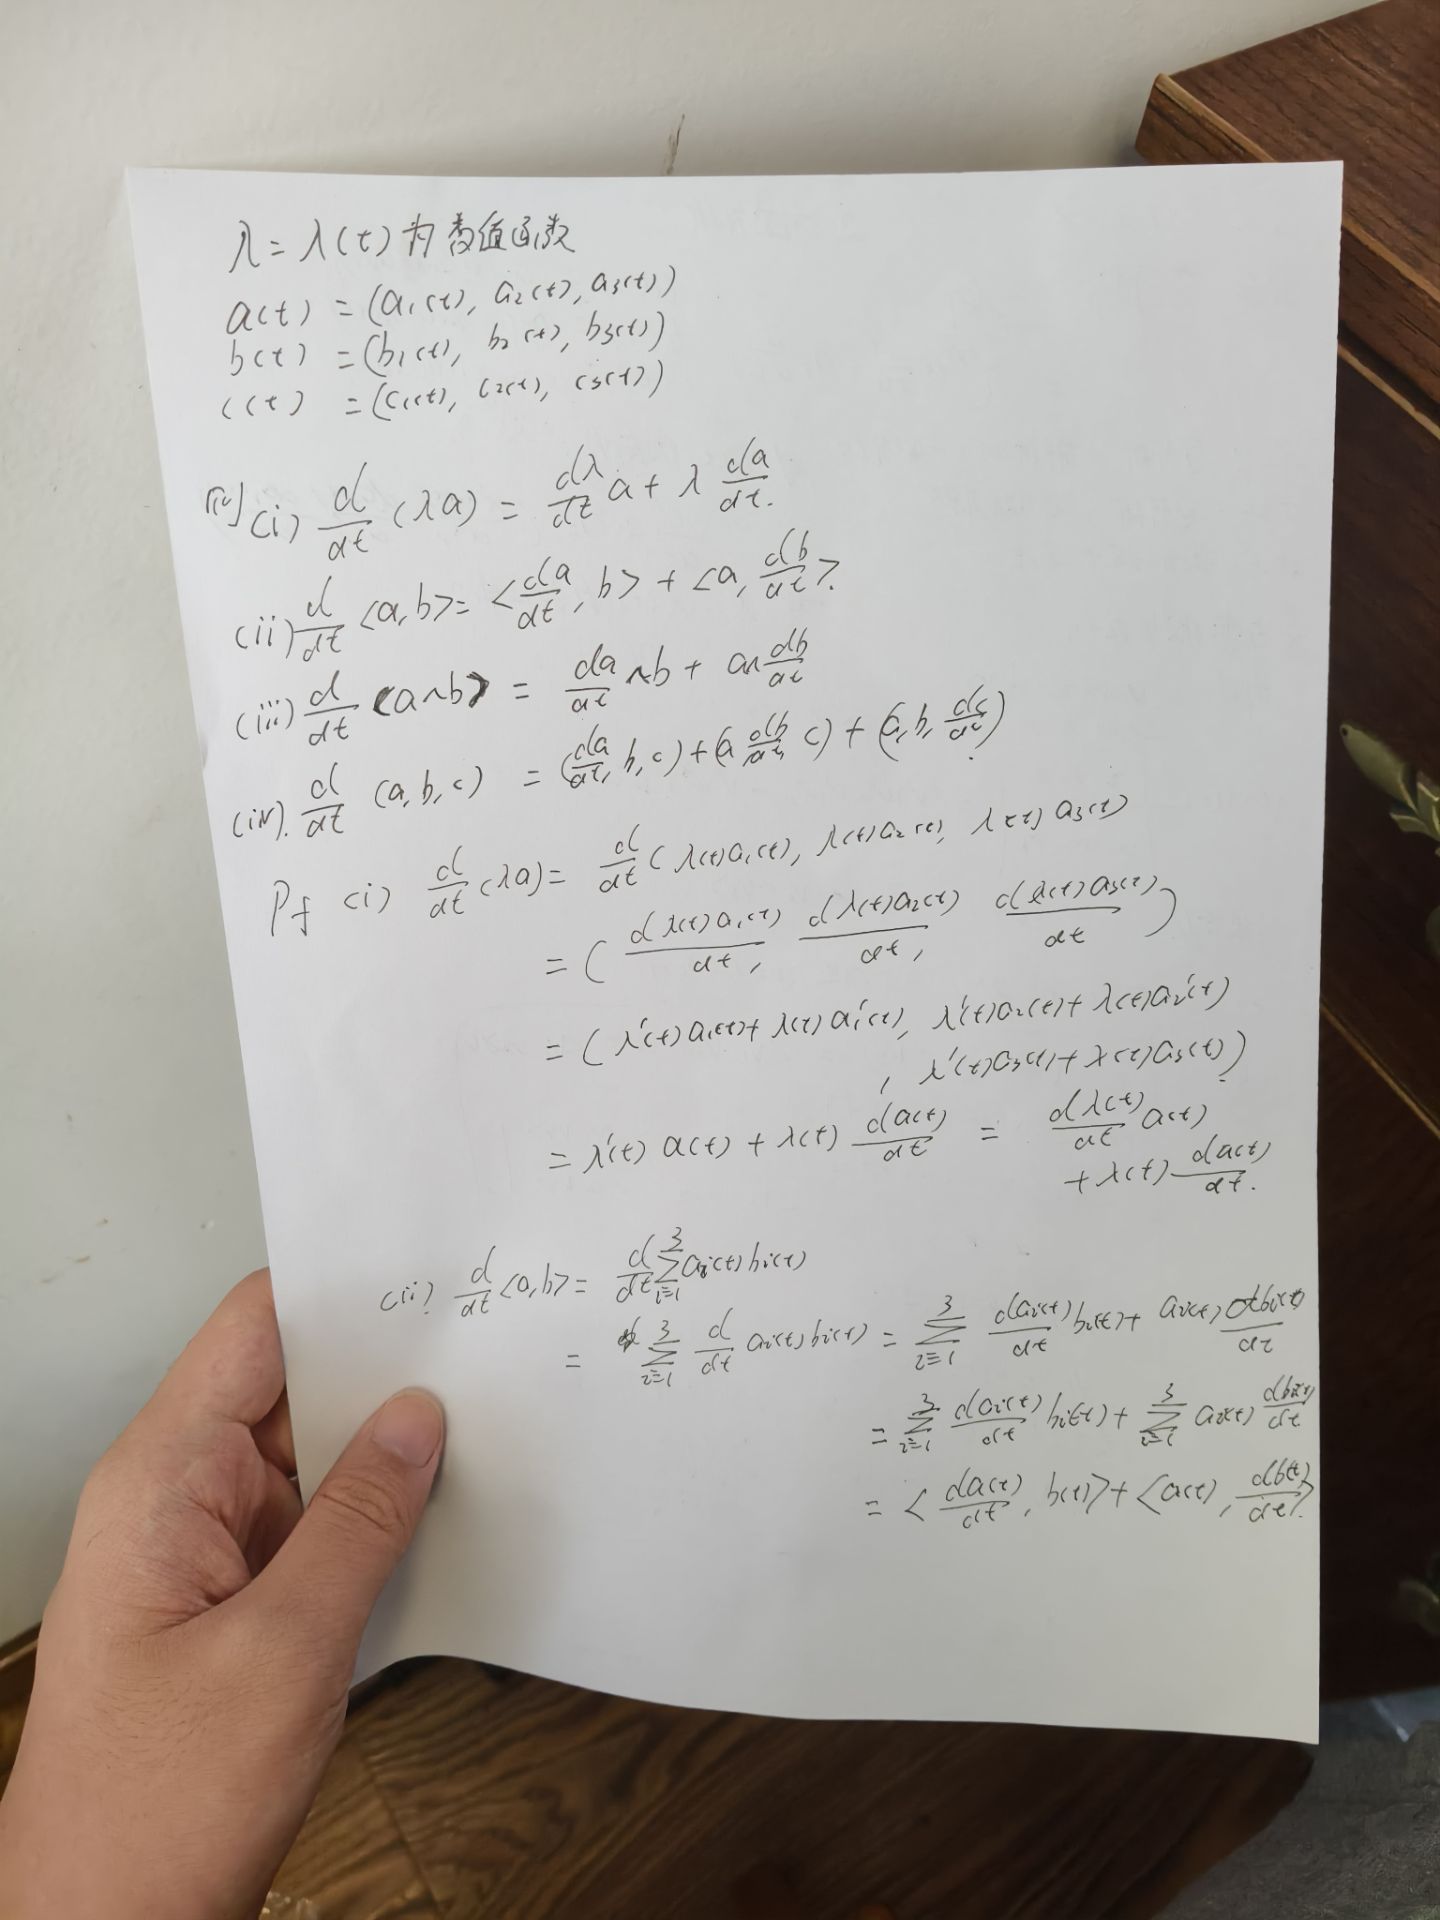 λ = λ(t) 为数值函数
a(t) = (a₁(t), a₂(t), a₃(t))
b(t) = (b₁(t), b₂(t), b₃(t))
c(t) = (c₁(t), c₂(t), c₃(t))
(i) d/dt (λa) = dλ/dt a + λ da/dt.
(ii) d/dt <a,b> = <da/dt, b> + <a, db/dt>.
(iii) d/dt (a∧b) = da/dt ∧b + a∧ db/dt
(iv). d/dt (a, b, c) = (da/dt, b, c) + (a, db/dt, c) + (a, b, dc/dt).
Pf (i) d/dt (λa) = d/dt ( λ(t)a₁(t), λ(t)a₂(t), λ(t)a₃(t)
= ( dλ(t)a₁(t)/dt, dλ(t)a₂(t)/dt, dλ(t)a₃(t)/dt )
= ( λ'(t)a₁(t) + λ(t)a₁'(t), λ'(t)a₂(t) + λ(t)a₂'(t)
, λ'(t)a₃(t) + λ(t)a₃(t) ).
= λ'(t) a(t) + λ(t) da(t)/dt = dλ(t)/dt a(t)
+ λ(t) da(t)/dt.
(ii) d/dt <a,b> = d/dt ∑_{i=1}^{3} aᵢ(t)bᵢ(t)
= ∑_{i=1}^{3} d/dt aᵢ(t)bᵢ(t) = ∑_{i=1}^{3} daᵢ(t)/dt bᵢ(t) + aᵢ(t) dbᵢ(t)/dt
= ∑_{i=1}^{3} daᵢ(t)/dt bᵢ(t) + ∑_{i=1}^{3} aᵢ(t) dbᵢ(t)/dt
= < da(t)/dt, b(t)> + <a(t), db(t)/dt>.